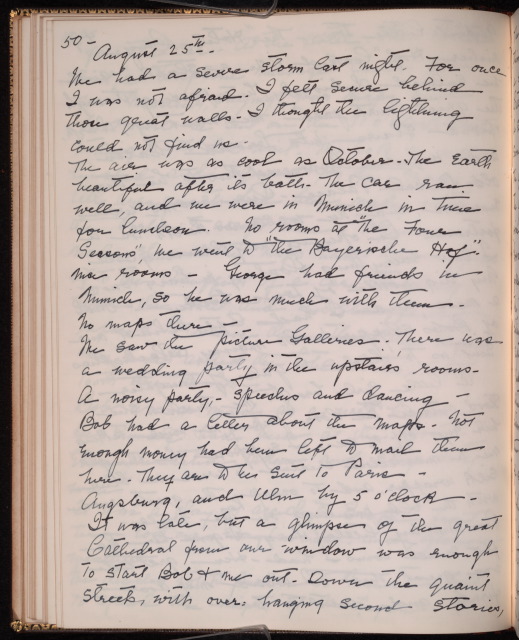 50-
August 25th.
We had a severe storm last night. For once
I was not afraid. I felt secure behind
those great walls - I thought the lightning
could not find us.
The air was as cool as October - The Earth
beautiful after its bath. The car ran
well, and we were in Munich in time
for luncheon. No rooms at "The Four
Seasons", we went to "the Bayerische Hof".
nice rooms - George had friends in
Munich, so he was much with them.
No maps there -
We saw the picture Galleries. There was
a wedding party in the upstairs rooms.
A noisy party, - speeches and dancing -
Bob had a letter about the maps. Not
enough money had been left to mail them
here. They are to be sent to Paris -
Augsburg, and Ulm by 5 o'clock -
It was late, but a glimpse of the great
Cathedral from our window was enough
to start Bob & me out. Down the quaint
streets, with over-hanging second stories,